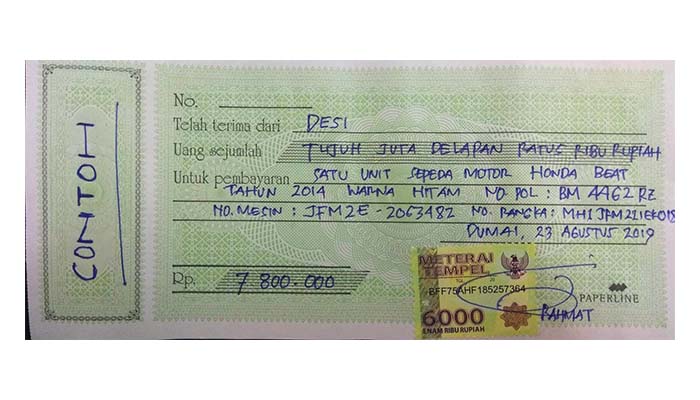 CONTOH
No.
Telah terima dari DESI
Uang sejumlah TUJUH JUTA DELAPAN RATUS RIBU RUPIAH
Untuk pembayaran SATU UNIT SEPEDA MOTOR HONDA BEAT
TAHUN 2014 WARNA HITAM NO. POL : BM 4462 RZ
NO. MESIN : JFM2E - 2063482 NO. RANGKA :
DUMAI, 23 AGUSTUS 2019
Rp. 7 800.000
METERAI
TEMPEL
BFF75AHF185257364
6000
ENAM RIBU RUPIAH
RAHMAT
PAPERLINE